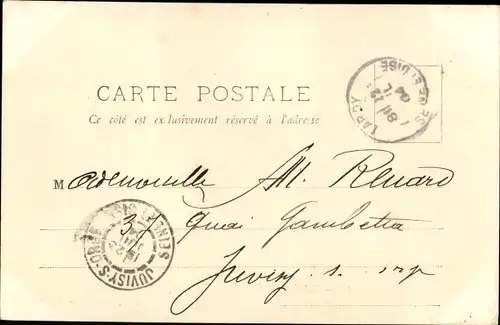 CARTE POSTALE
Ce côté est exclusivement réservé à l'adresse
LARDY
Mademoiselle M. Renard
37 Quai Gambetta
Juvisy s. orge
JUVISY-S-ORGE
SEINE